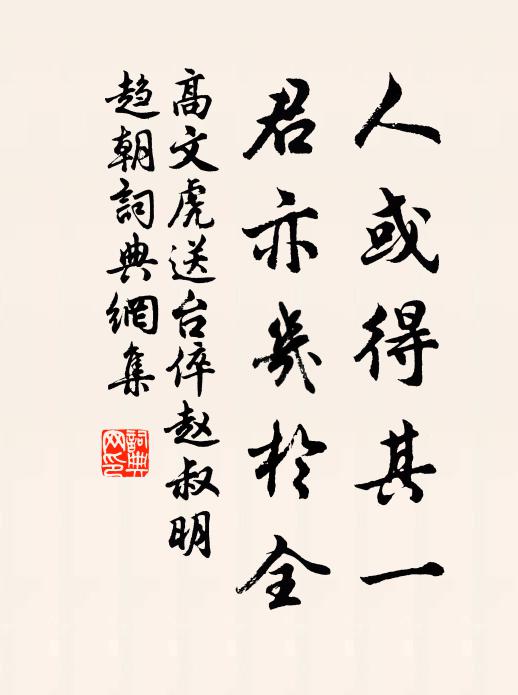 人或得其一
君亦幾於全
高文虎送台倅赵叔明
趋朝詞典網集
詞典
网印